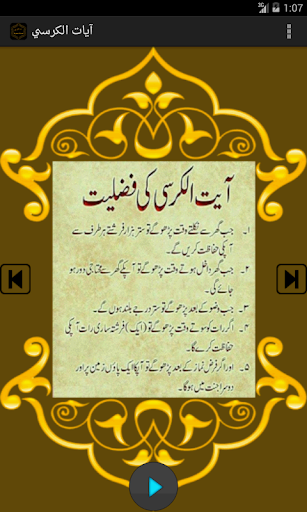 3G 1:07
آيات الكرسي
آیت الکرسی کی فضلیت
۱۔ جب گھر سے نکلتے وقت پڑھو گے تو ستر ہزار فرشتے ہر طرف سے
آپکی حفاظت کریں گے۔
۲۔ جب گھر داخل ہوتے وقت پڑھو گے تو آپکے گھر سے محتاجی دور ہو
جائے گی۔
۳۔ جب وضو کے بعد پڑھو گے تو ستر درجے بلند ہوں گے۔
۴۔ اگر رات کو سوتے وقت پڑھو گے تو (ایک) فرشتہ ساری رات آپکی
حفاظت کرے گا۔
۵۔ اور اگر فرض نماز کے بعد پڑھو گے تو آپکا ایک پاؤں زمین پر اور
دوسرا جنت میں ہو گا۔